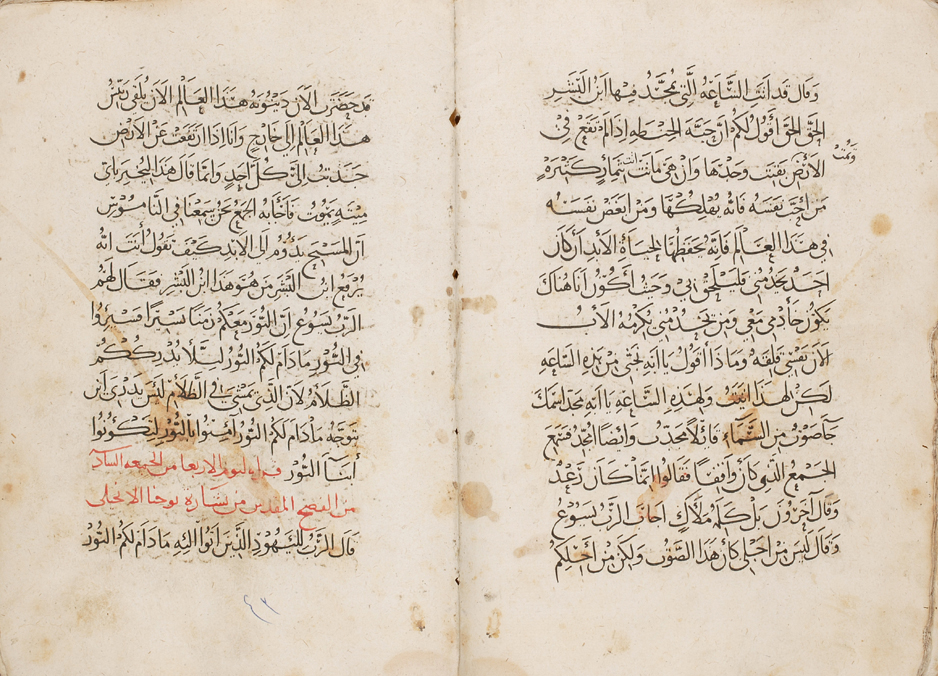 وقال قد اتت الساعه التي يمجد فيها ابن البشر
الحق الحق اقول لكم ان حبة الحنطه اذا لم تقع في
وتمت
الارض بقيت وحدها وان هي ماتت اتت بثمار كثيرة
من احب نفسه فانه يهلكها ومن ابغض نفسه
في هذا العالم فانه يحفظها لحياة الابد ان كان
احد يخدمني فليلحق بي وحيث اكون انا هناك
يكون خادمي معي ومن يخدمني يكرمه الاب
الان نفسي قلقه وماذا اقول يا ابه نجني من هذه الساعه
لكن لهذا اتيت ولهذه الساعه يا ابه مجد اسمك
جا صوت من السماء قائلا مجدت وايضا امجد فسمع
الجمع الذي كان واقفا فقالوا انما كان رعد
وقال آخرون بل كلمه ملاك اجاب الرب يسوع
وقال ليس من اجلي كان هذا الصوت ولكن من اجلكم
قد حضرت الان دينونة هذا العالم الان يلقى رئيس
هذا العالم الى خارج وانا اذا ارتفعت عن الارض
جذبت الي كل احد وانما قال هذا ليخبر باي
ميتة يموت فاجابه الجمع نحن سمعنا في الناموس
ان المسيح يدوم الى الابد كيف تقول انت انه
يرفع ابن البشر من هو هذا ابن البشر فقال لهم
الرب يسوع ان النور معكم زمنا يسيرا فسيروا
في النور ما دام لكم النور لئلا يدرككم
الظلام لان الذي يمشي في الظلام ليس يدري اين
يتوجه ما دام لكم النور آمنوا بالنور لتكونوا
ابنا النور قراه ليوم الاربعا من الجمعه السادسه
من الفصح المقدس من بشاره يوحنا الانجيلي
قال الرب لليهود الذين اتوا اليه ما دام لكم النور
٤٢